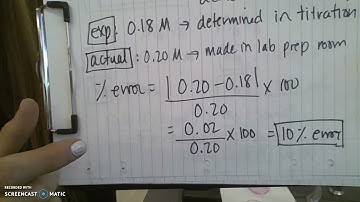 exp: 0.18 M → determined in titration
actual: 0.20 M → made in lab prep room
% error = |0.20 - 0.18| x 100
0.20
= 0.02 x 100 = 10% error
0.20
RECORDED WITH
SCREENCAST-O-MATIC